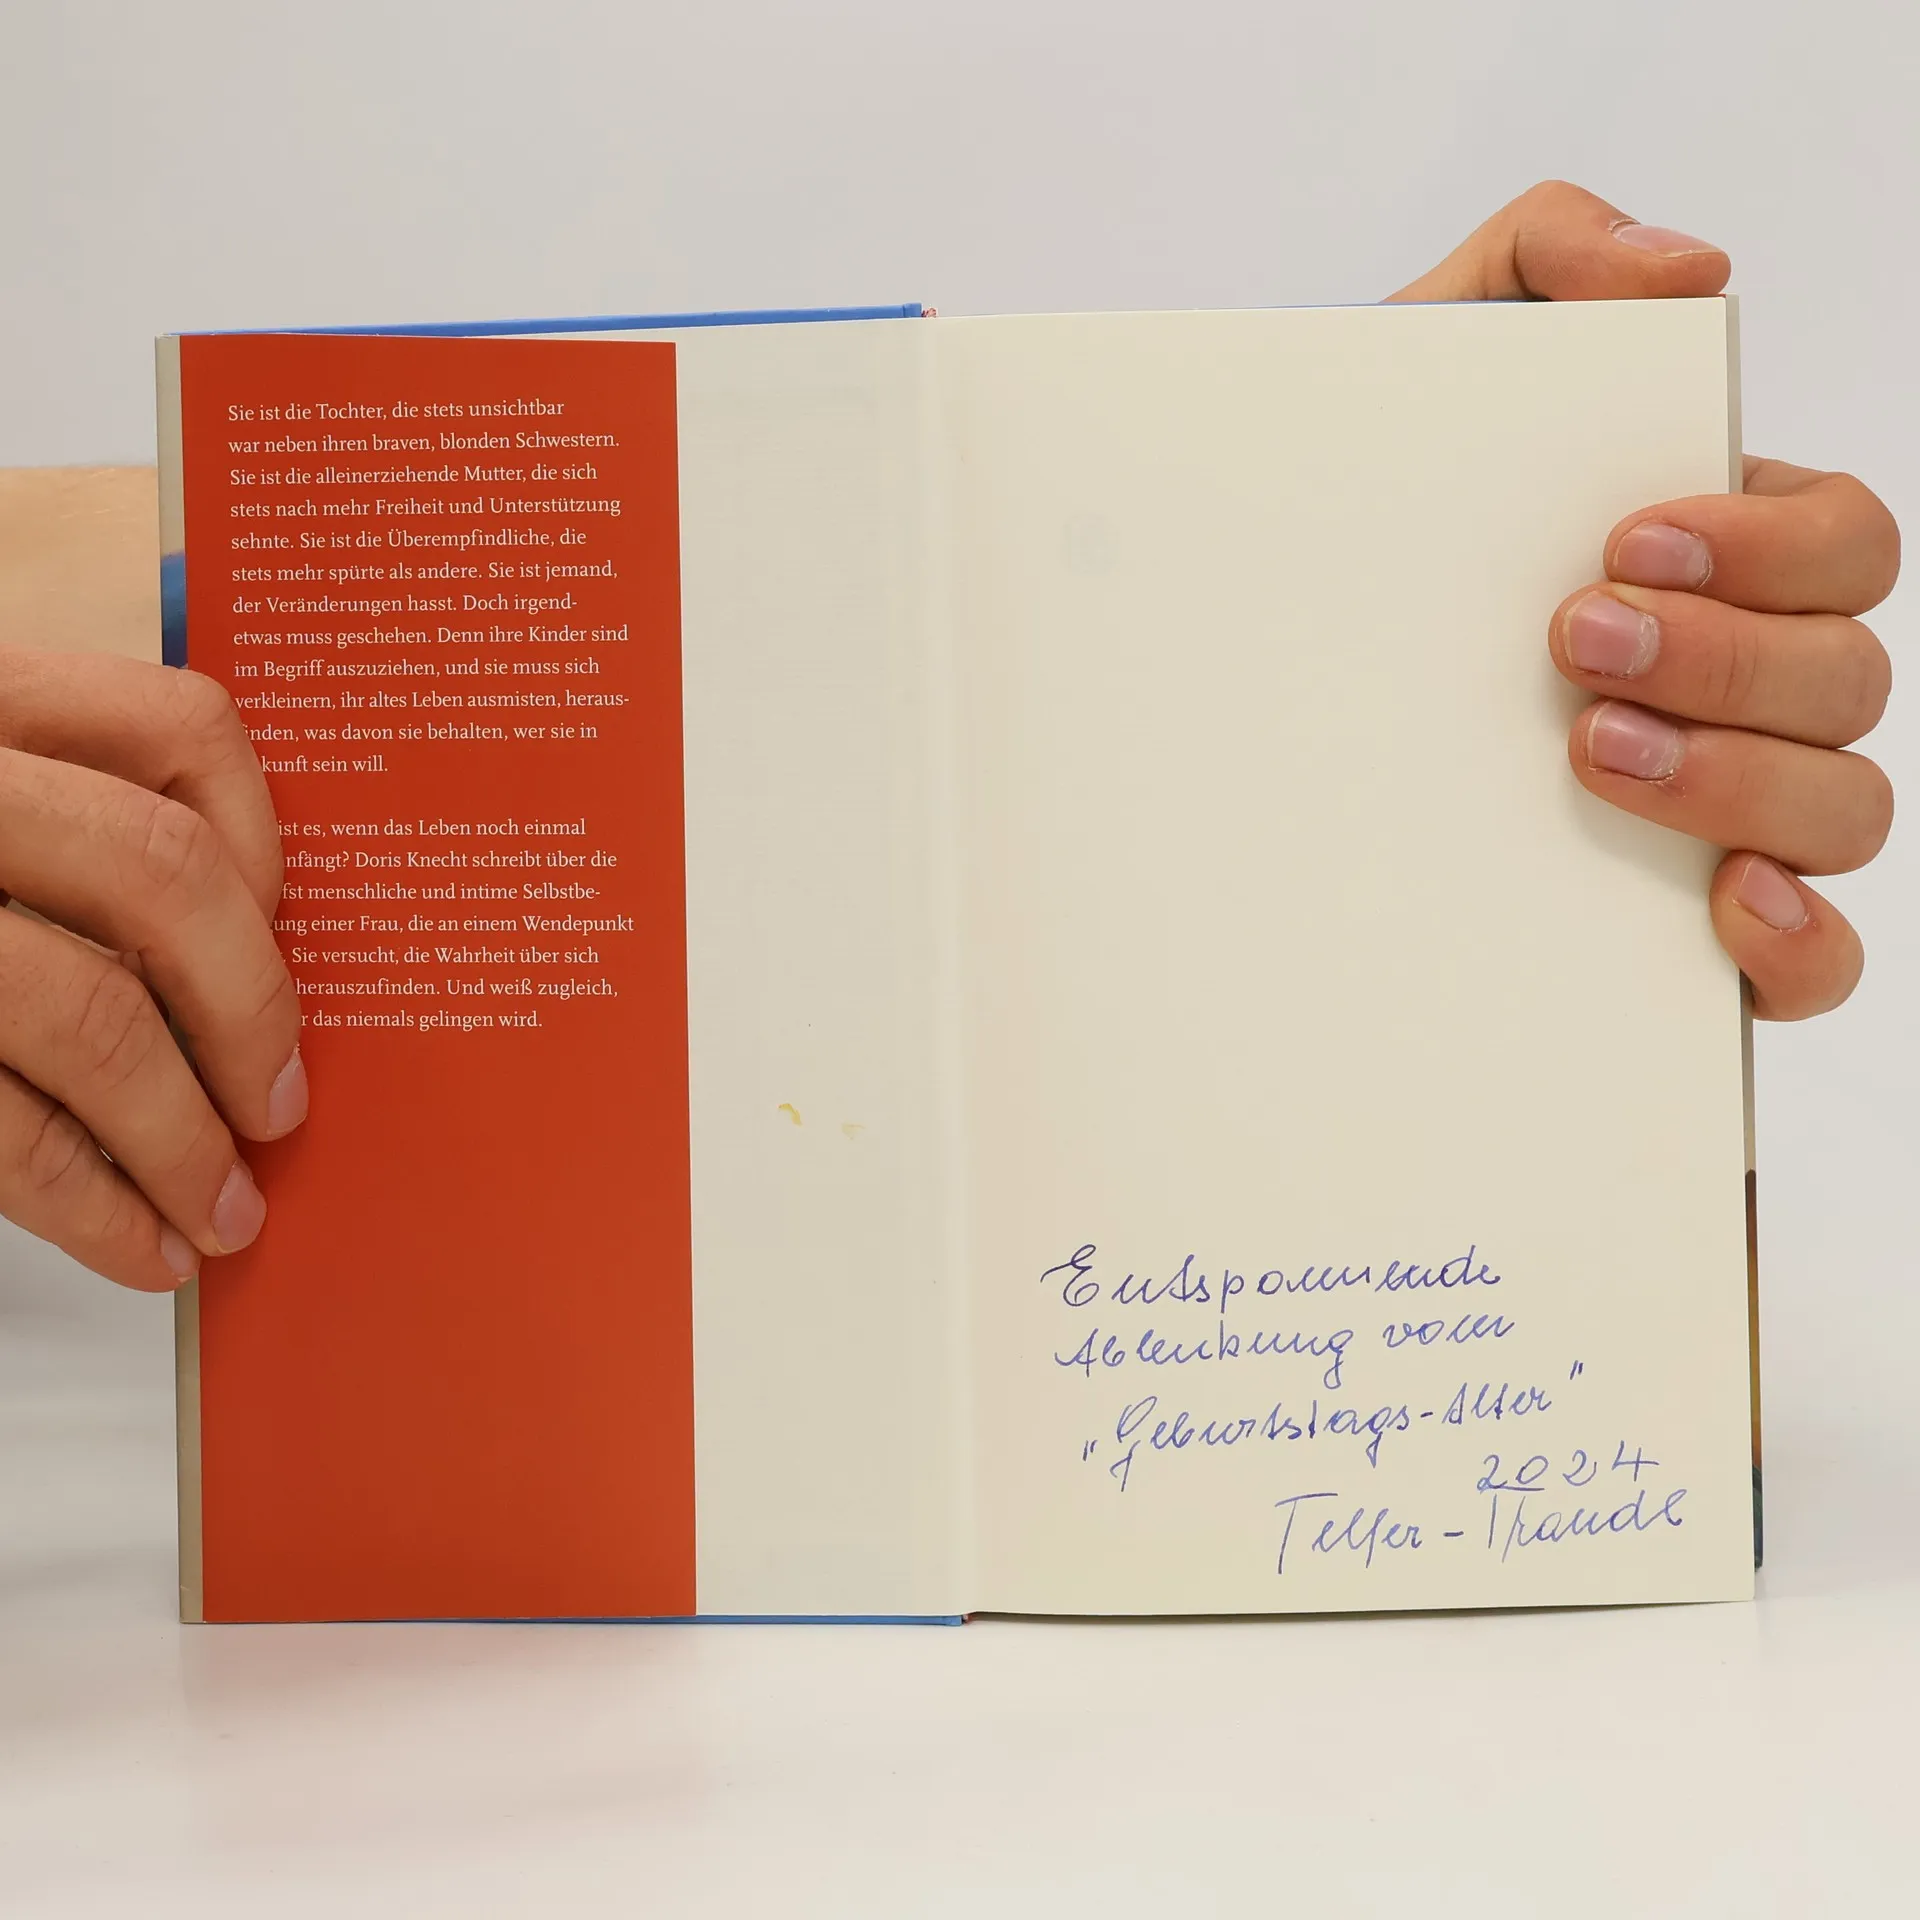 Sie ist die Tochter, die stets unsichtbar
war neben ihren braven, blonden Schwestern.
Sie ist die alleinerziehende Mutter, die sich
stets nach mehr Freiheit und Unterstützung
sehnte. Sie ist die Überempfindliche, die
stets mehr spürte als andere. Sie ist jemand,
der Veränderungen hasst. Doch irgend-
etwas muss geschehen. Denn ihre Kinder sind
im Begriff auszuziehen, und sie muss sich
verkleinern, ihr altes Leben ausmisten, heraus-
inden, was davon sie behalten, wer sie in
kunft sein will.
ist es, wenn das Leben noch einmal
nfängt? Doris Knecht schreibt über die
fst menschliche und intime Selbstbe-
ung einer Frau, die an einem Wendepunkt
. Sie versucht, die Wahrheit über sich
herauszufinden. Und weiß zugleich,
r das niemals gelingen wird.
Entspannende
Ablenkung vom
„Geburtstags-Alter"
2024
Telfer - Traudl